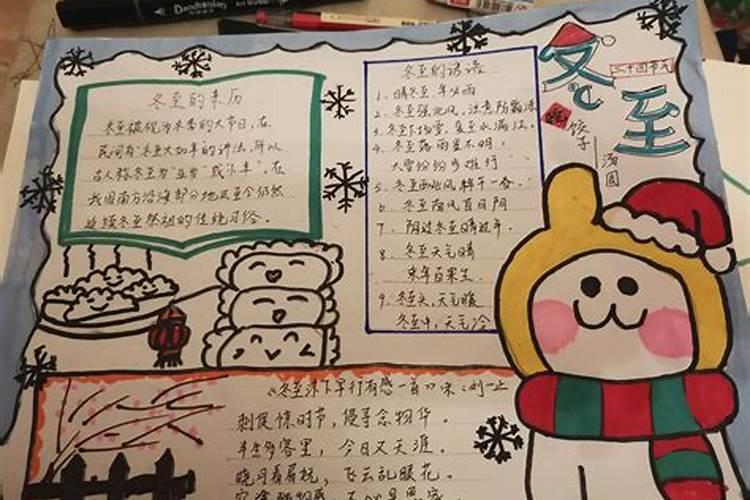 冬至
二十四节气
饺子
汤圆
冬至的来历
冬至被视为冬季的大节日,在
民间有"冬至大如年"的讲法,所以
古人称冬至为"亚岁"或"小年"。在
我国南方沿海部分地区至今仍然
延续冬至祭祖的传统习俗。
冬至的谚语
1、晴冬至,年必雨
2、冬至强北风,注意防霜冻
3、冬至下场雪,夏至水满江。
4、冬至落雨星不明,
大雪纷纷步难行
5、冬至西北风,
6、冬至南风百日阴
7、阴过冬至晴过年。
8、冬至天气晴
来年百果生。
9、冬至头,天气暖
冬至中,天气冷
刺促惊时节,慢寻念物华。
今日又天涯。
晓河看屡枕,飞云乱眼花。